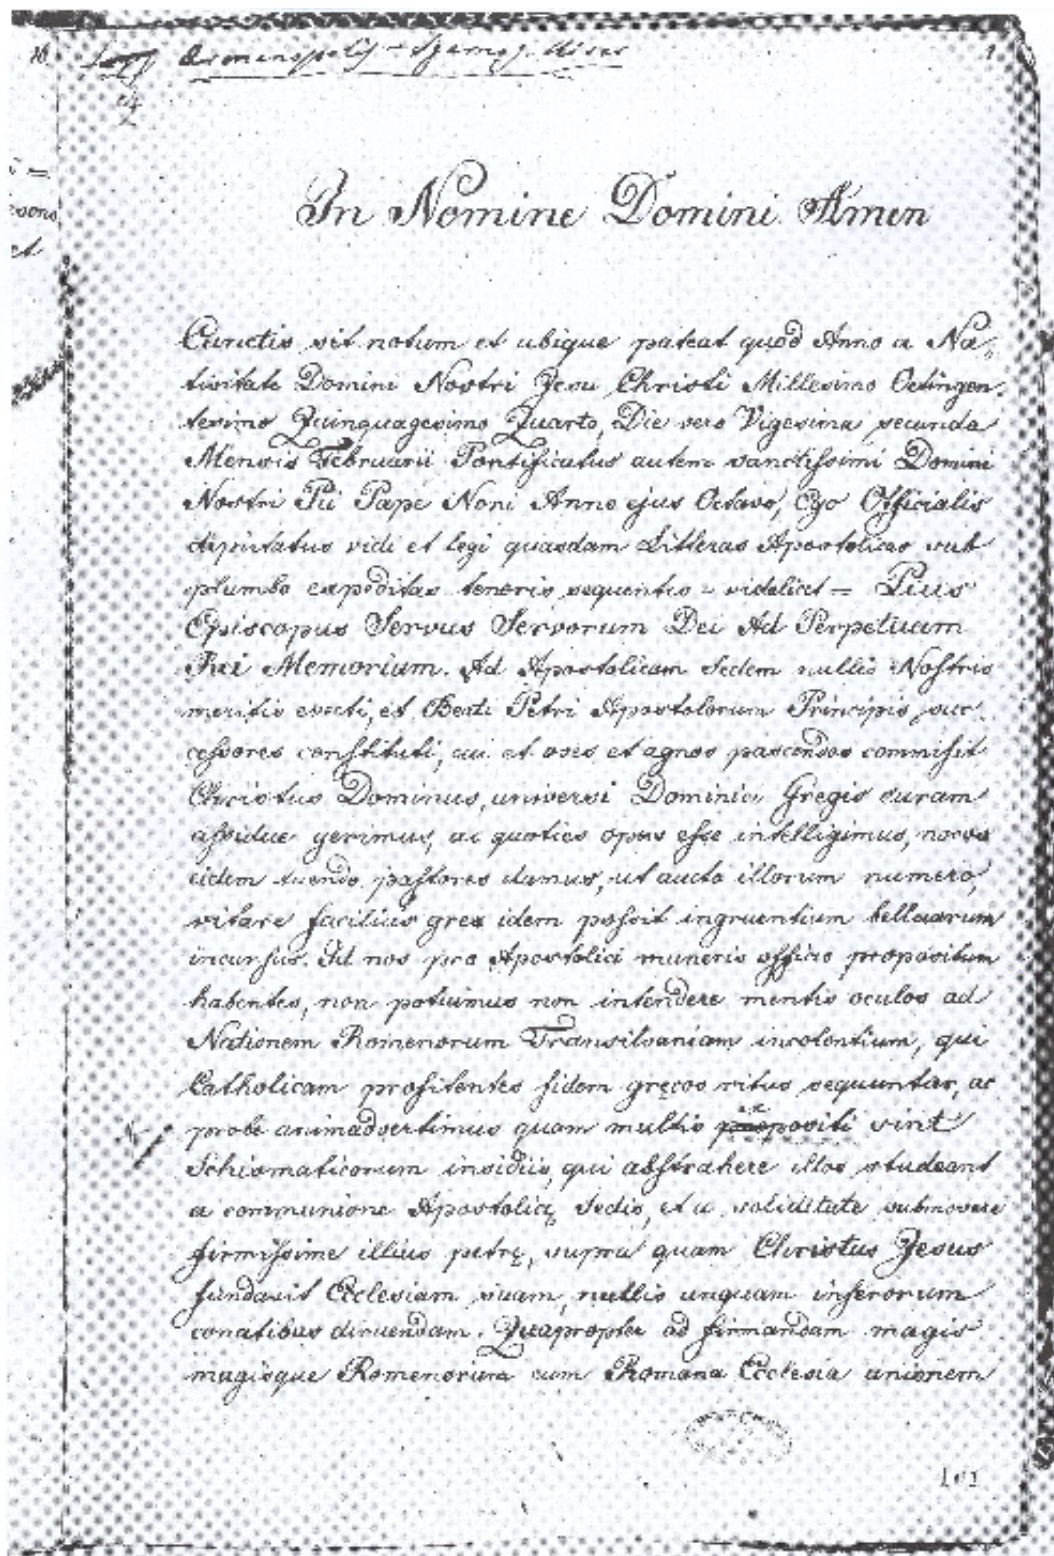 In Nomine Domini Amen
Cunctis sit notum et ubique pateat quod Anno a Na=
tivitate Domini Nostri Jesu Christi Millesimo Octingen=
tesimo Quinquagesimo Quarto, Die vero Vigesima secunda
Mensis Februarii Pontificatus autem sanctissimi Domini
Nostri Pii Pape Noni Anno ejus Octavo, Ego Officialis
deputatus vidi et legi quasdam Litteras Apostolicas sub
plumbo expeditas tenoris sequentis = videlicet = Pius
Episcopus Servus Servorum Dei Ad Perpetuam
Rei Memoriam. Ad Apostolicam Sedem nullis Nostris
meritis evecti, et Beati Petri Apostolorum Principis suc=
cessores constituti, cui et oves et agnos pascendos commisit
Christus Dominus, universi Dominici Gregis curam
assidue gerimus, ac quoties opus esse intelligimus, novos
eidem tuendo pastores damus, ut aucto illorum numero,
vitare facilius grex idem possit ingruentium belluarum
incursus. Id nos pro Apostolici muneris officio propositum
habentes, non potuimus non intendere mentis oculos ad
Nationem Romenorum Transilvaniam incolentium, qui
Catholicam profitentes fidem gręcos ritus sequuntur, ac
probe animadvertimus quam multis expositi sint
Schismaticorum insidiis, qui abstrahere illos studeant
a communione Apostolicę Sedis, et a soliditate submovere
firmissime illius petrę, supra quam Christus Jesus
fundavit Ecclesiam suam, nullis unquam inferorum
conatibus diruendam. Quapropter ad firmandam magis
magisque Romenorum cum Romana Ecclesia unionem
101